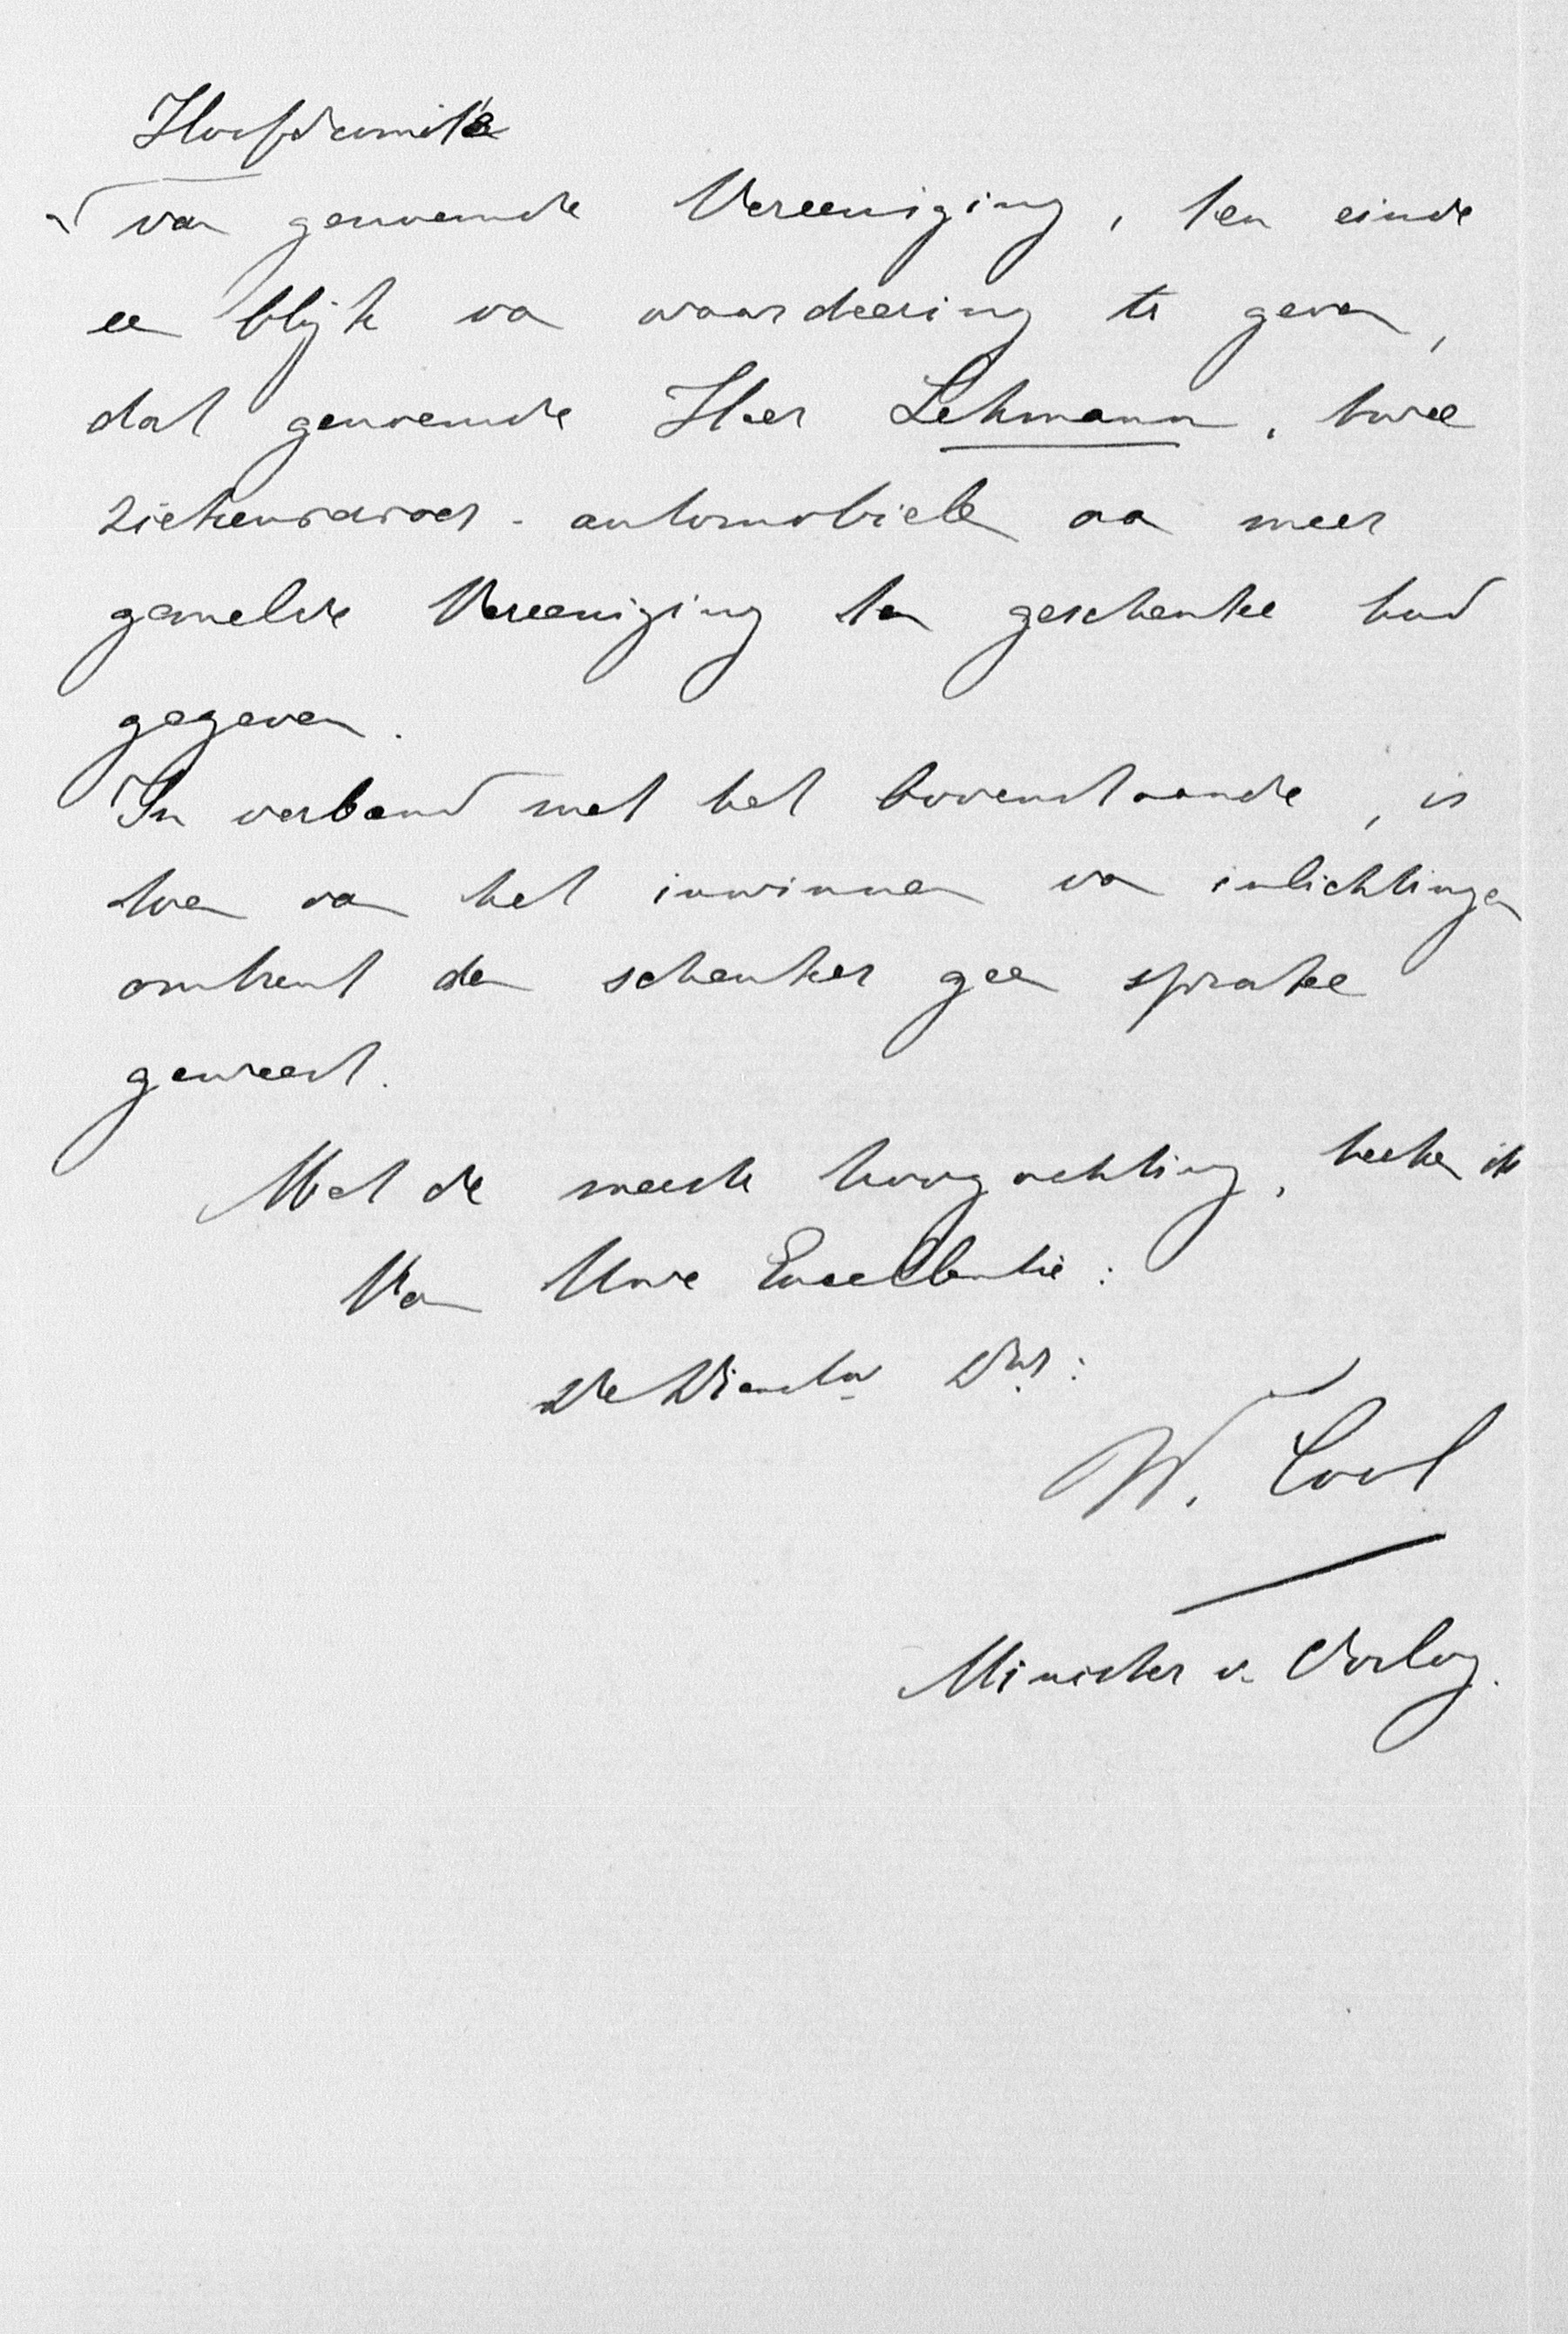 Hoofdcomité
van genoemde Vereeniging, ten einde
een blijk van waardeering te geven,
dat genoemde Heer Lehmann, twee
ziekenvervoer-automobielen aan meer
gemelde Vereeniging ten geschenke had
gegeven.
In verband met het bovenstaande, is
toen van het inwinnen van inlichtingen
omtrent den schenker geen sprake
geweest.
Met de meeste hoogachting, teeken ik
Van Uwe Excellentie:
De Dienstw Dnr:
W. Cool
Minister v. Oorlog.